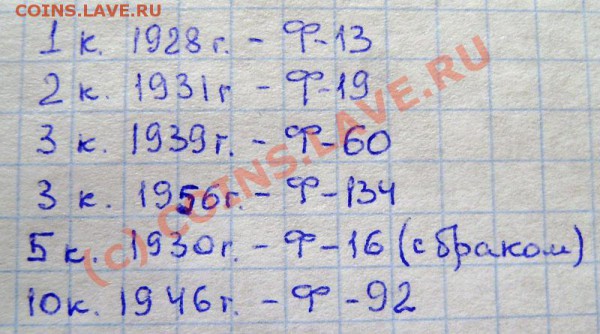 COINS.LAVE.RU
1 к. 1928 г. - Ф-13
2 к. 1931 г - Ф-19
3 к. 1939 г. - Ф-60
3 к. 1956 г. - Ф-134
5 к. 1930 г. - Ф-16 (с браком)
10 к. 1946 г. - Ф-92
(c) COINS.LAVE.RU